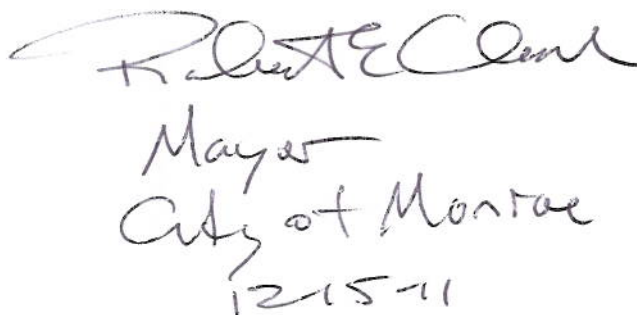 Robert E Clark
Mayor
City of Monroe
12-15-11